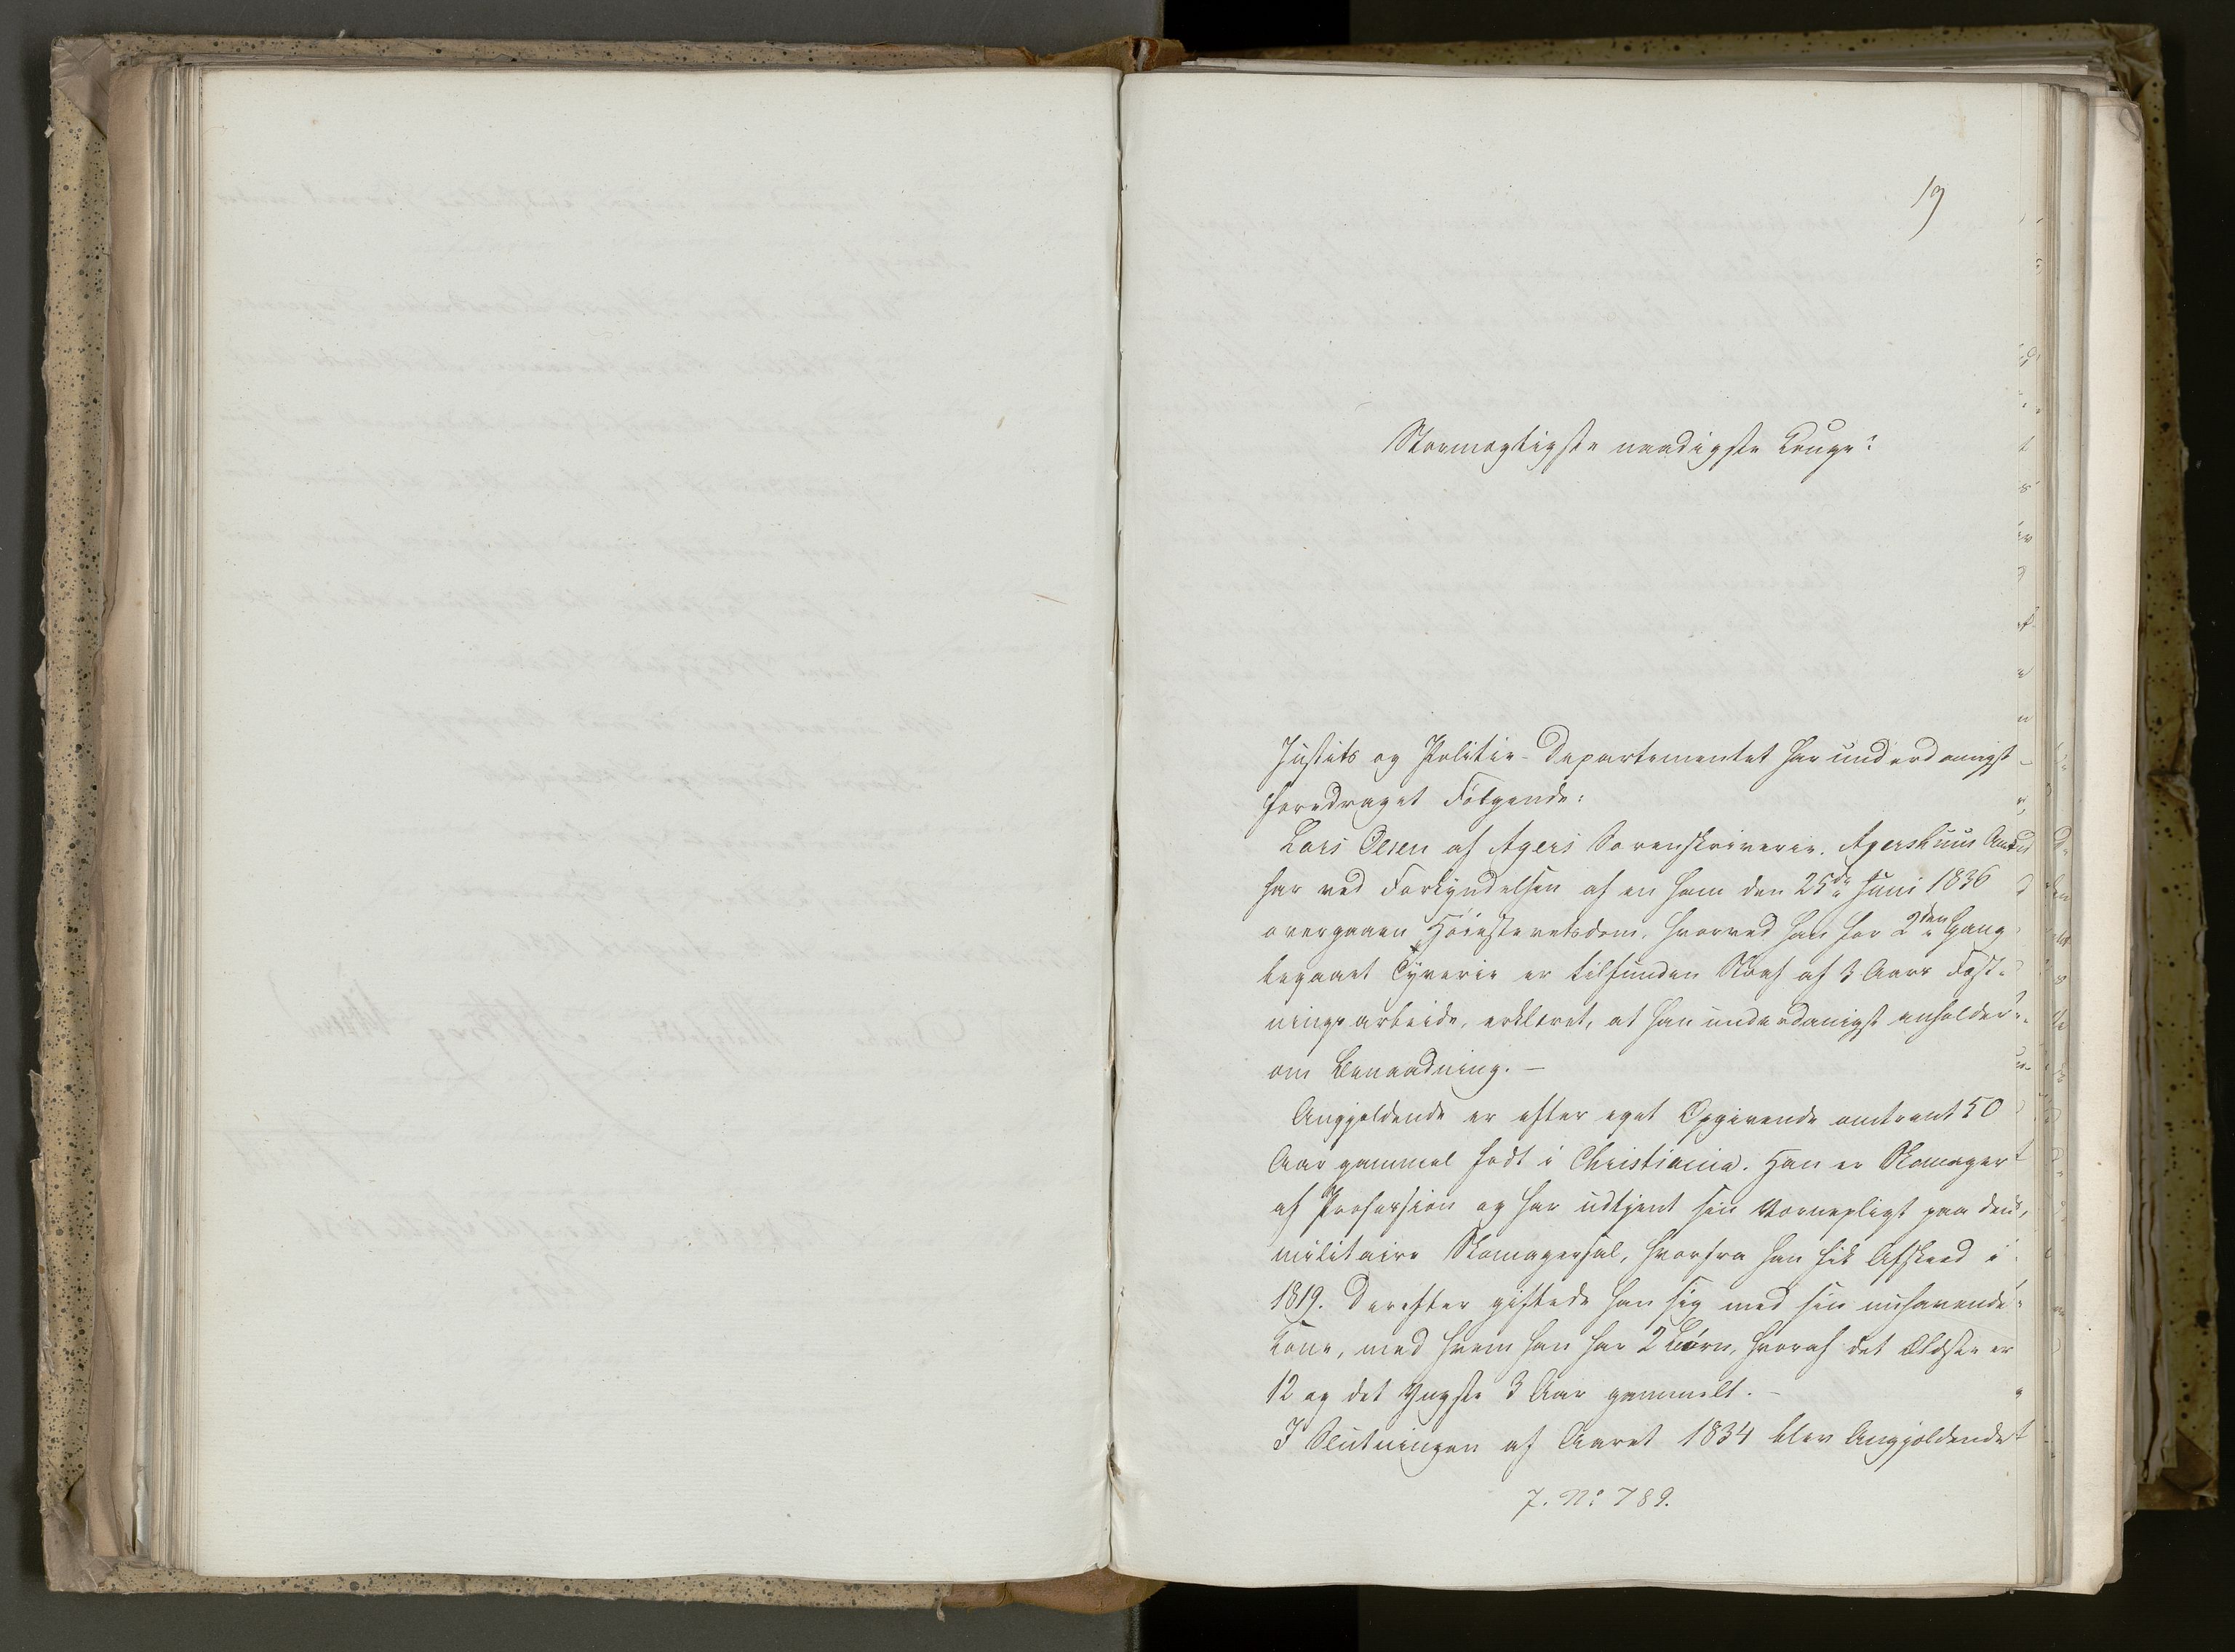 19
Stormægtigste naadigste Konge!
Justits og Politie-Departementet har underdanigst
foredraget Følgende:
Lars Olsen af Agers Sorenskriverie, Agershuus Amt
har ved Forkyndelsen af en ham den 25de Juni 1836
overgaaen Høiesteretsdom, hvorved han for 2den Gang
begaaet Tyverie er tilfunden Straf af 3 Aars Fæst-
ningsarbeide, erklæret, at han underdanigst anholder
om Benaadning. -
Angjeldende er efter eget Opgivende omtrent 50
Aar gammel født i Christiania. Han er Skomager
af Profession og har udtjent sin Vernepligt paa den
militaire Skomagersal, hvorfra han fik Afskeed i
1819. Derefter giftede han sig med sin nuhavende
Kone, med hvem han har 2 Børn, hvoraf det Ældste er
12 og det Yngste 3 Aar gammelt. -
I Slutningen af Aaret 1834 blev Angjeldende
J. No 789.